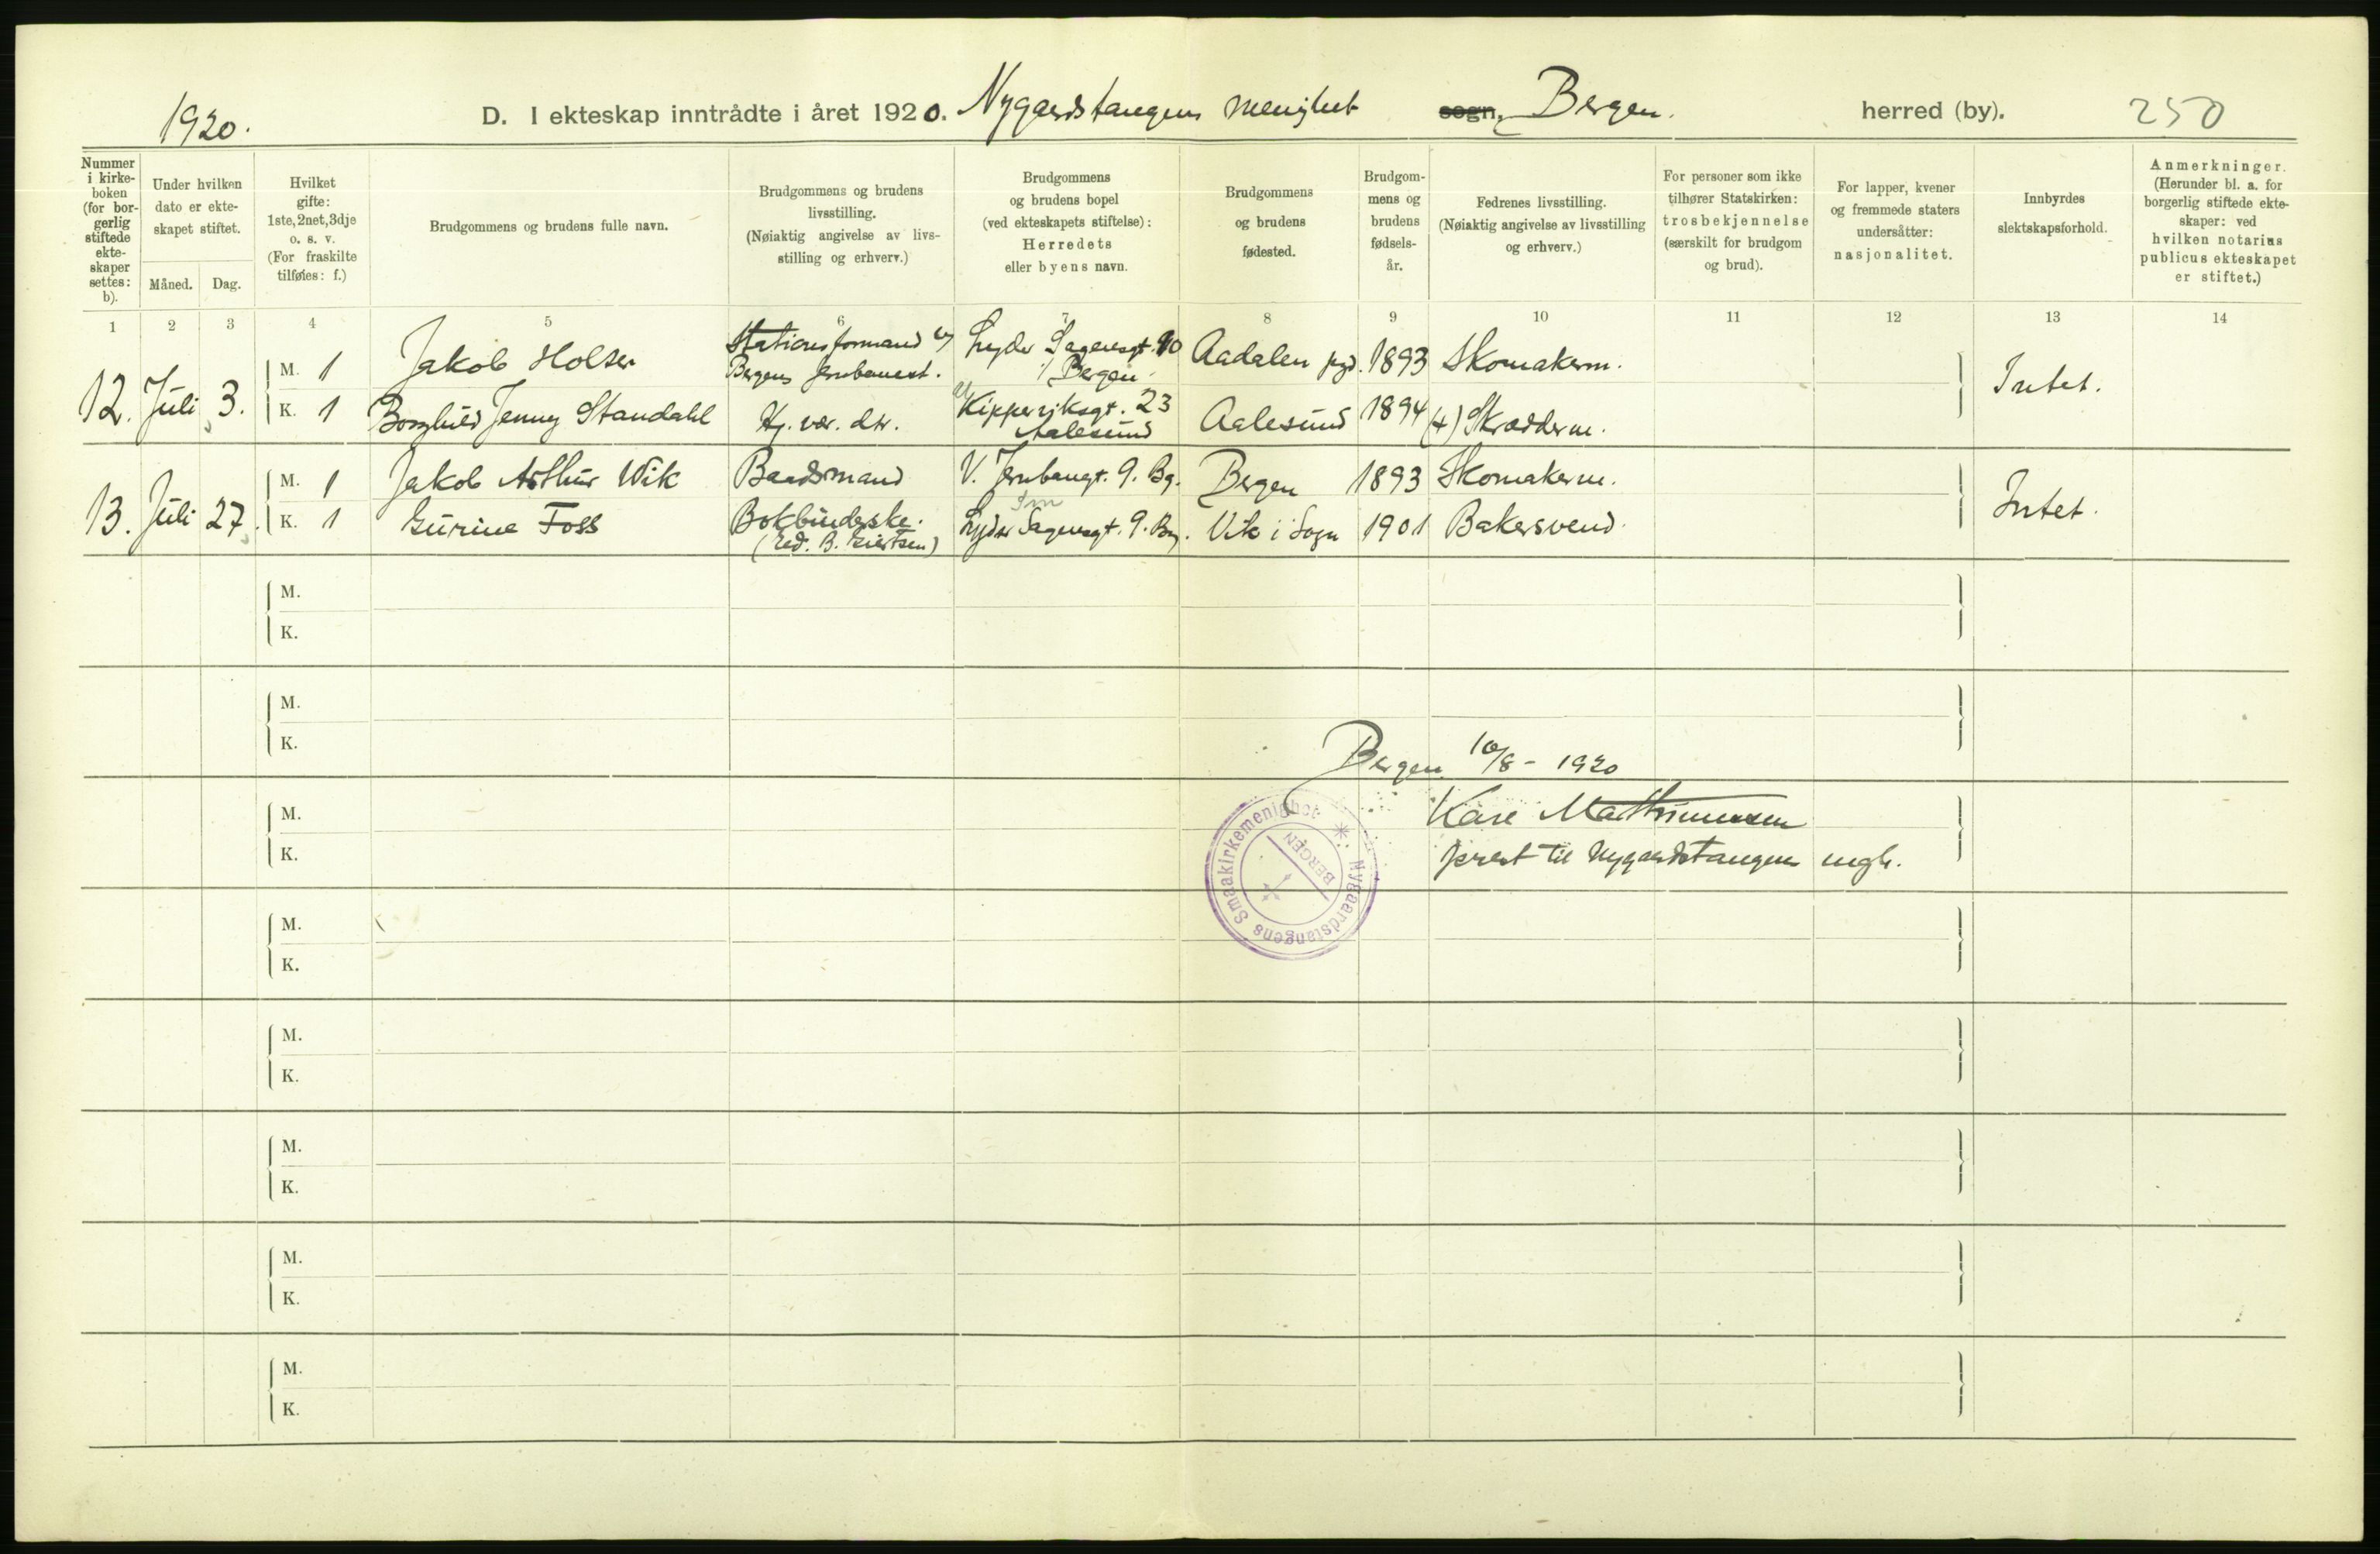 1920.
D. I ekteskap inntrådte i året 1920. Nygaardstangens menighet sogn, Bergen. herred (by). 250
Nummer i kirke- boken (for bor- gerlig stiftede ekte- skaper settes: b).
Under hvilken dato er ekte- skapet stiftet.
Måned. Dag.
Hvilket gifte: 1ste, 2net, 3dje o. s. v. (For fraskilte tilføies: f.)
Brudgommens og brudens fulle navn.
Brudgommens og brudens livsstilling. (Nøiaktig angivelse av livs- stilling og erhverv.)
Brudgommens og brudens bopel (ved ekteskapets stiftelse): Herredets eller byens navn.
Brudgommens og brudens fødested.
Brudgom- mens og brudens fødsels- år.
Fedrenes livsstilling. (Nøiaktig angivelse av livsstilling og erhverv.)
For personer som ikke tilhører Statskirken: trosbekjennelse (særskilt for brudgom og brud).
For lapper, kvener og fremmede staters undersåtter: nasjonalitet.
Innbyrdes slektskapsforhold.
Anmerkninger. (Herunder bl. a. for borgerlig stiftede ekte- skaper: ved hvilken notarius publicus ekteskapet er stiftet.)
1 2 3 4 5 6 7 8 9 10 11 12 13 14
12. Juli 3. M. 1 Jakob Holsen Stationsformand v/ Bergens Jernbanest. Lyder Sagensgt. 10 Bergen Aadalen pgd. 1893 Skomakerm. Intet.
K. 1 Borghild Jenny Standahl Hj. vær. dtr. Kipperviksgt. 23 Aalesund Aalesund 1894 (+) Skrædderm.
13. Juli 27. M. 1 Jakob Arthur Wik Baadsmand V. Jernbanegt. 9. Bg. Bergen 1893 Skomakerm. Intet.
K. 1 Gurine Foss Bokbinderske. (ved. B. Giertsen) Lyder Sagensgt. 9. Bg. Vik i Sogn 1901 Bakersvend.
M.
K.
M.
K.
Bergen 10/8 - 1920
M.
Kåre Mathiunessen
K.
prest til Nygaardstangens mgh.
Nygaardstangens Smaakirkemenighet
BERGEN
M.
K.
M.
K.
M.
K.
M.
K.
M.
K.